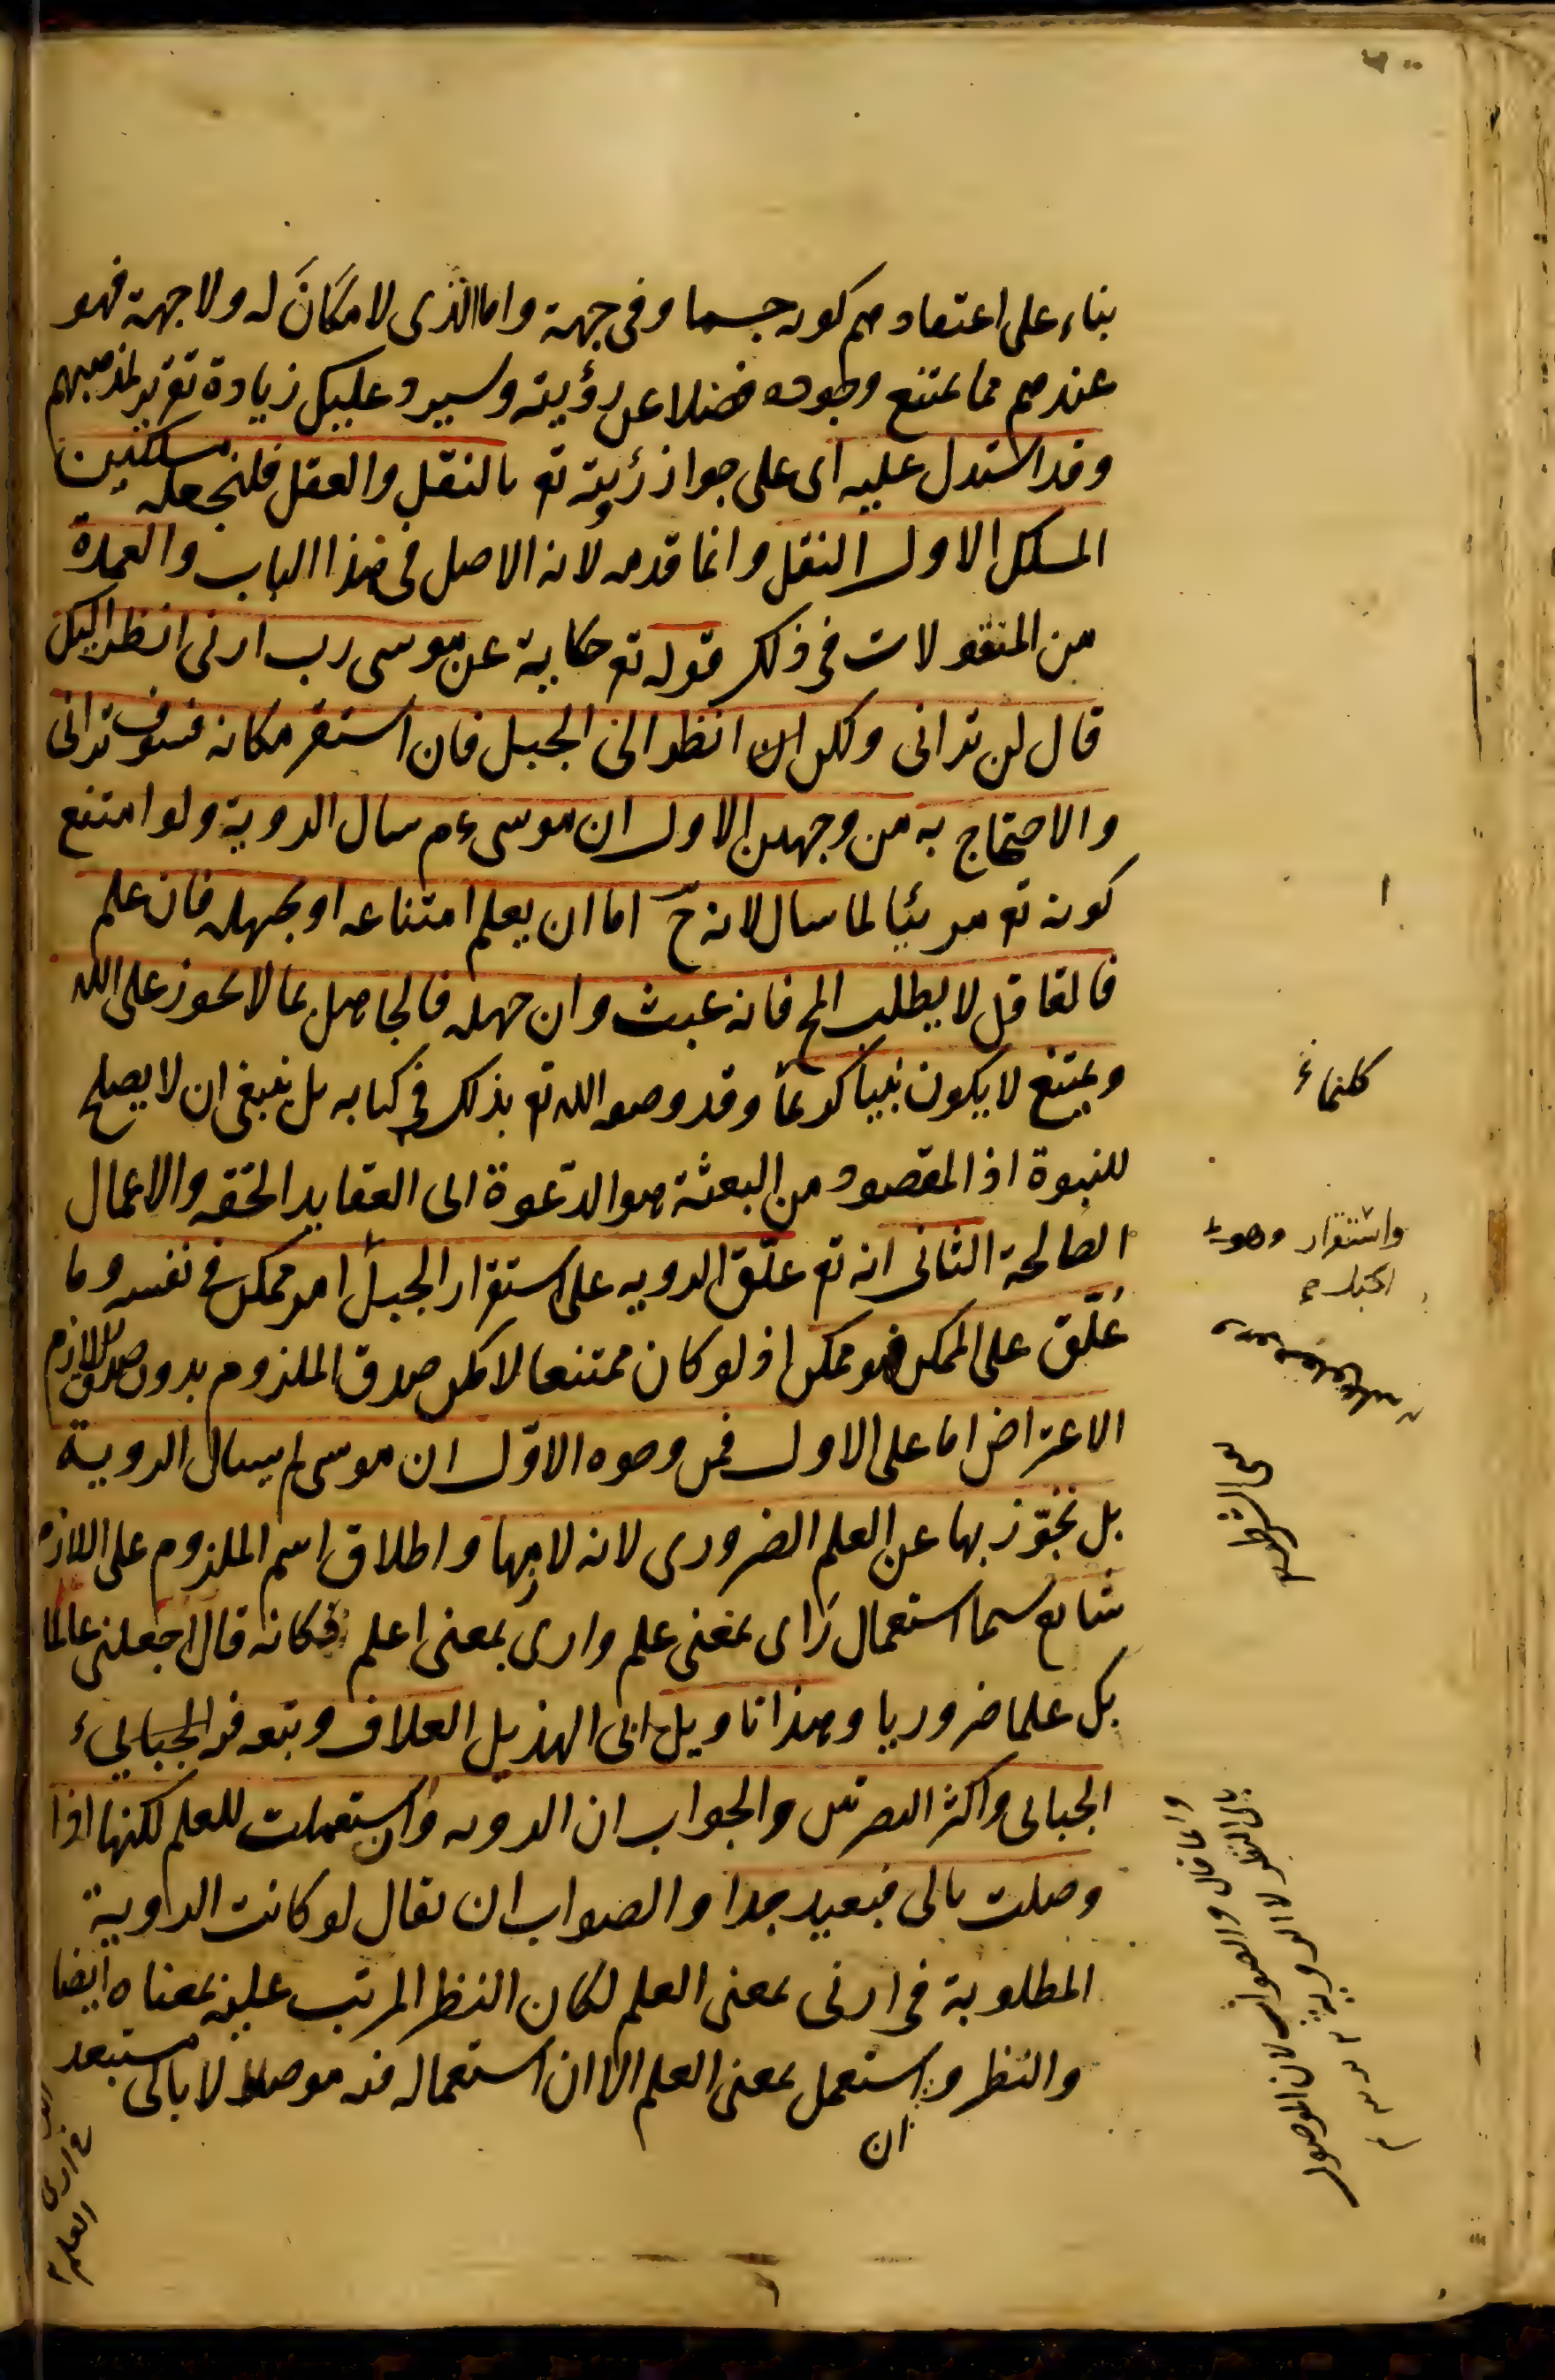 بناء على اعتقادهم كونه جسما وفى جهة واما الذى لا مكان له ولا جهة فهو
عندهم مما يمتنع وجوده فضلا عن رؤيته وسيرد عليك زيادة تقرير لمذهبهم
وقد استدل عليه اى على جواز رؤيته تع بالنقل والعقل فلنجعله مسلكين
المسلك الاول النقل وانما قدمه لانه الاصل فى هذا الباب والعمدة
من المنقولات فى ذلك قوله تع حكاية عن موسى رب ارنى انظر اليك
قال لن ترانى ولكن انظر الى الجبل فان استقر مكانه فسوف ترانى
والاحتجاج به من وجهين الاول ان موسى عم سال الروية ولو امتنع
كونه تع مرئيا لما سال لانه ح اما ان يعلم امتناعه او يجهله فان علم
فالعاقل لا يطلب المح فانه عبث وان جهله فالجاهل بما لا يجوز على الله
ويمتنع لا يكون نبيا كريما وقد وصفه الله تع بذلك فى كتابه بل ينبغى ان لا يصلح
للنبوة اذ المقصود من البعثة هو الدعوة الى العقايد الحقه والاعمال
الصالحة الثانى انه تع علّق الرويه على استقرار الجبل امر ممكن فى نفسه وما
عُلّق على الممكن فهو ممكن اذ لو كان ممتنعا لامكن صدق الملزوم بدون صدق اللازم
الاعتراض اما على الاول فمن وجوه الاوّل ان موسى لم يسال الروية
بل تجوّز بها عن العلم الضرورى لانه لازمها واطلاق اسم الملزوم على اللازم
شايع سيما استعمال راى بمعنى علم وارى بمعنى اعلم فكانه قال اجعلنى عالما
بك علما ضروريا وهذا تاويل ابى الهذيل العلاف وتبعه فيه الجبائي
الجبائى واكثر البصريين والجواب ان الرويه وان استعملت للعلم لكنها اذا
وصلت بالى فبعيد جدا والصواب ان يقال لو كانت الروية
المطلوبة فى ارنى بمعنى العلم لكان النظر المرتب عليه بمعناه ايضا
والنظر وان استعمل بمعنى العلم الا ان استعماله فيه موصولا بالى مستبعد
واستقرار
الجبل
وانما قال والصواب لان الموصول
بالى النظر لا الروية